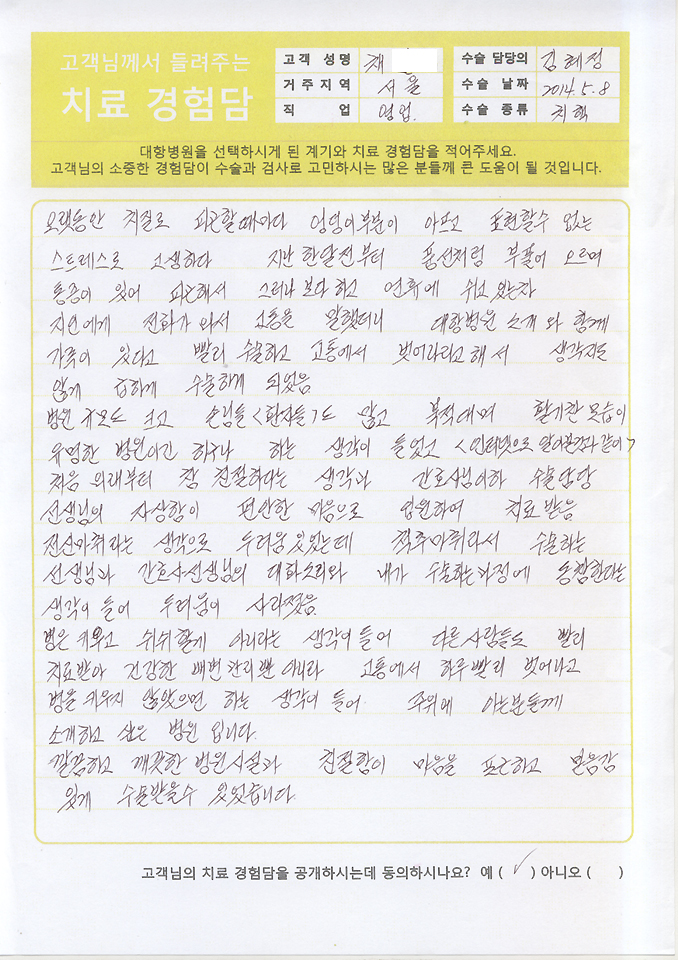 고객님께서 들려주는
치료 경험담
고객 성명 채
거주지역 서울
직 업 영업.
수술 담당의 김혜정
수술 날짜 2014.5.8
수술 종류 치핵
대항병원을 선택하시게 된 계기와 치료 경험담을 적어주세요.
고객님의 소중한 경험담이 수술과 검사로 고민하시는 많은 분들께 큰 도움이 될 것입니다.
오랫동안 치질로 피곤할때마다 엉덩이부분이 아프고 표현할수 없는
스트레스로 고생하다 지난 한달전부터 풍선처럼 부풀어 오르며
통증이 있어 피곤해서 그러나 보다 하고 연휴에 쉬고 있는차
지인에게 전화가 와서 고통을 말했더니 대항병원 소개 와 함께
가족이 있다고 빨리 수술하고 고통에서 벗어나라고 해서 생각지도
않게 급하게 수술하게 되었음
병원 규모도 크고 손님들<환자들>도 많고 북적대며 활기찬 모습이
유명한 병원이긴 하구나 하는 생각이 들었고 <인터넷으로 알아본것과 같이>
처음 외래부터 참 친절하다는 생각과 간호사님이하 수술담당
선생님의 자상함이 편안한 마음으로 입원하여 치료받음
전신마취라는 생각으로 두려움있었는데 척추마취라서 수술하는
선생님과 간호사선생님의 대화소리와 내가 수술하는과정에 동참한다는
생각이 들어 두려움이 사라졌음
병은 키우고 쉬쉬할게 아니라는 생각이 들어 다른사람들도 빨리
치료받아 건강한 배변관리뿐 아니라 고통에서 하루빨리 벗어나고
병을 키우지 않았으면 하는 생각이 들어 주위에 아는분들께
소개하고 싶은 병원 입니다.
깔끔하고 깨끗한 병원시설과 친절함이 마음을 포근하고 믿음감
있게 수술받을수 있었습니다.
고객님의 치료 경험담을 공개하시는데 동의하시나요? 예 ( ✓ ) 아니오 ( )